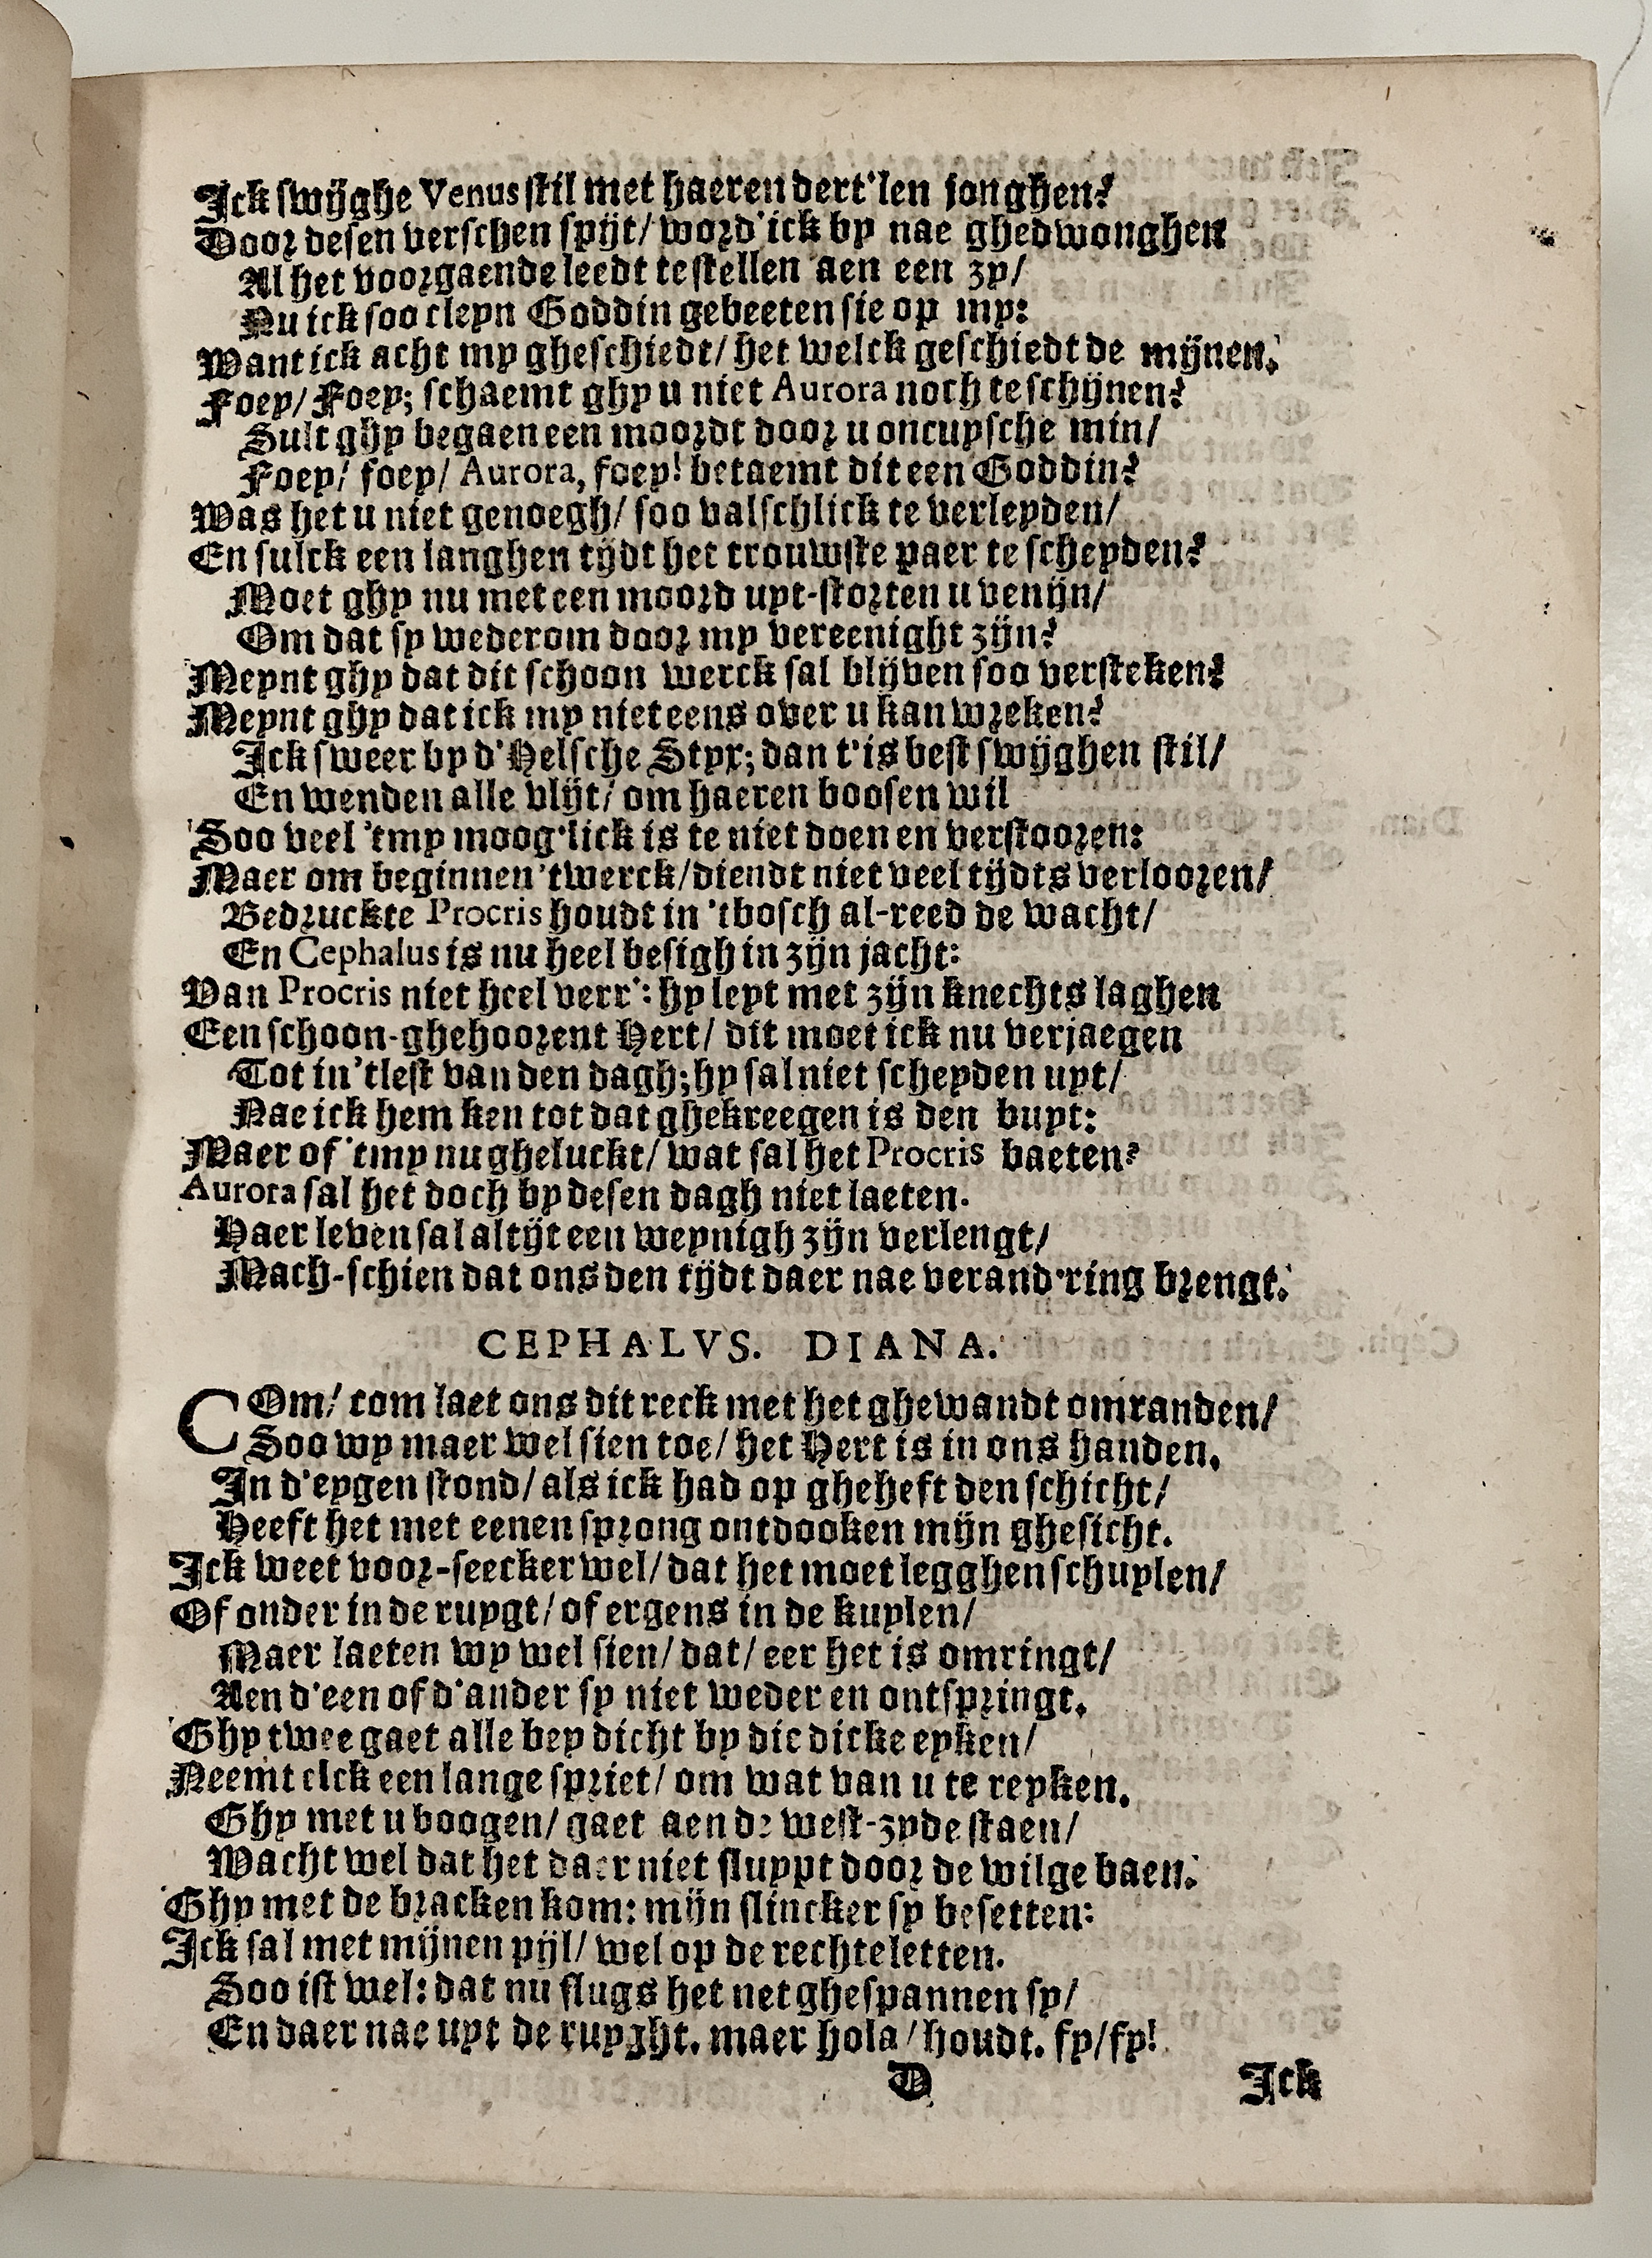 Ick swijghe Venus stil met haeren dert'len jonghen?
Door desen verschen spijt/ word' ick by nae ghedwonghen
Al het voorgaende leedt te stellen aen een zy/
Nu ick soo cleyn Goddin gebeeten sie op my:
Want ick acht my gheschiedt/ het welck geschiedt de mijnen.
Foey/ Foey; schaemt ghy u niet Aurora noch te schijnen?
Sult ghy begaen een moordt door u oncuysche min/
Foey/ foey/ Aurora, foey! betaemt dit een Goddin?
Was het u niet genoegh/ soo valschlick te verleyden/
En sulck een langhen tijdt het trouwste paer te scheyden?
Moet ghy nu met een moord uyt-storten u venijn/
Om dat sy wederom door my vereenight zijn?
Meynt ghy dat dit schoon werck sal blijven soo versteken?
Meynt ghy dat ick my niet eens over u kan wreken?
Ick sweer by d'Helsche Styx; dan t'is best swijghen stil/
En wenden alle vlijt/ om haeren boosen wil
Soo veel 'tmy moog'lick is te niet doen en verstooren:
Maer om beginnen 'twerck/ diendt niet veel tijdts verlooren/
Bedruckte Procris houdt in 'tbosch al-reed de wacht/
En Cephalus is nu heel besigh in zijn jacht:
Van Procris niet heel verr': hy leyt met zijn knechts laghen
Een schoon-ghehoorent Hert/ dit moet ick nu verjaegen
Tot in 'tlest van den dagh; hy sal niet scheyden uyt/
Nae ick hem ken tot dat ghekreegen is den buyt:
Maer of 'tmy nu gheluckt/ wat sal het Procris baeten?
Aurora sal het doch by desen dagh niet laeten.
Haer leven sal altijt een weynigh zijn verlengt/
Mach-schien dat ons den tijdt daer nae verand'ring brengt.
CEPHALVS. DIANA.
COm/ com laet ons dit reck met het ghewandt omranden/
Soo wy maer wel sien toe/ het Hert is in ons handen.
In d'eygen stond/ als ick had op gheheft den schicht/
Heeft het met eenen sprong ontdooken mijn ghesicht.
Ick weet voor-seecker wel/ dat het moet legghen schuylen/
Of onder in de ruygt/ of ergens in de kuylen/
Maer laeten wy wel sien/ dat/ eer het is omringt/
Aen d'een of d'ander sy niet weder en ontspringt.
Ghy twee gaet alle bey dicht by die dicke eyken/
Neemt elck een lange spriet/ om wat van u te reyken.
Ghy met u boogen/ gaet aen de west-zyde staen/
Wacht wel dat het daer niet sluypt door de wilge baen.
Ghy met de bracken kom: mijn slincker sy besetten:
Ick sal met mijnen pijl/ wel op de rechte letten.
Soo ist wel: dat nu flugs het net ghespannen sy/
En daer nae uyt de ruyght. maer hola/ houdt. sy/sy!
D
Ick